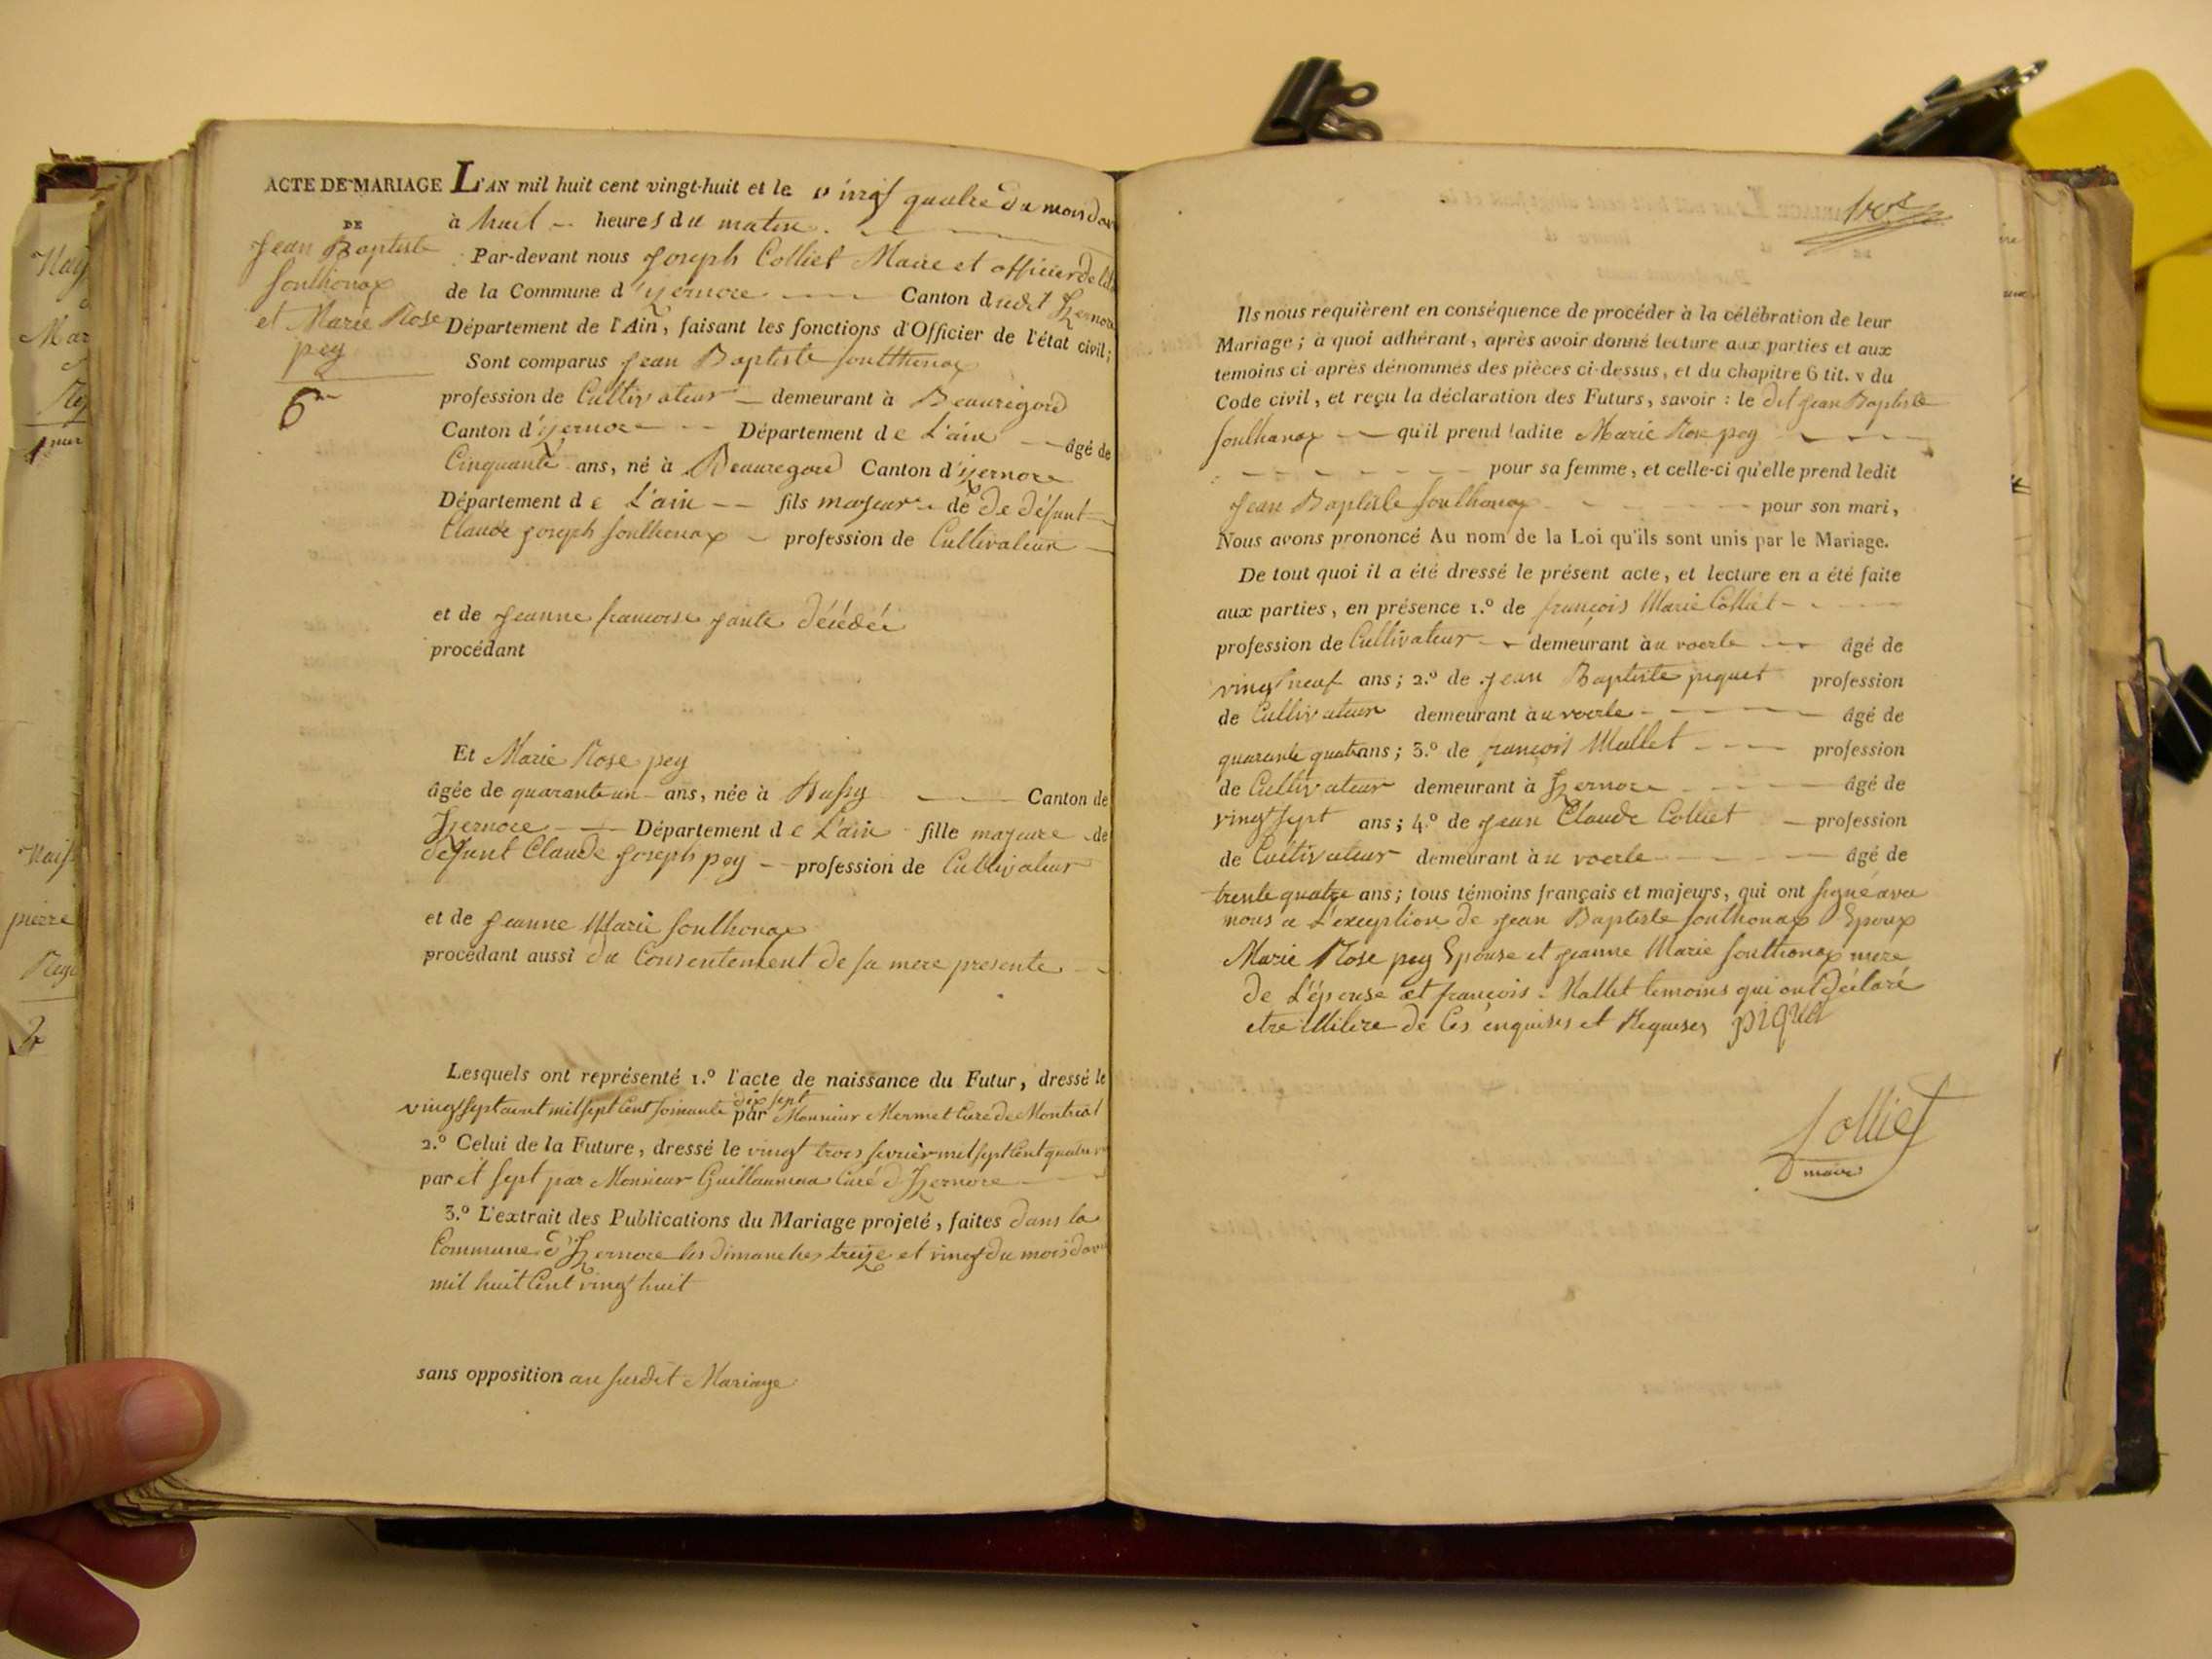 ACTE DE MARIAGE
DE
Jean Baptiste
Sonthonax
et Marie Rose
pey
6
L'AN mil huit cent vingt-huit et le vingt quatre du mois d'av
à huit heures du matin.
Par-devant nous Joseph Colliet Maire et officier de
de la Commune d'izernore Canton dudit Izernore
Département de l'Ain, faisant les fonctions d'Officier de l'état civil;
Sont comparus Jean Baptiste Sontthonax
profession de Cultivateur demeurant à Beauregard
Canton d'izernore Département de L'ain âgé de
Cinquante ans, né à Beauregard Canton d'izernore
Département de L'ain fils majeur de de défunt
Claude Joseph Sonthonax profession de Cultivateur
et de Jeanne francoise décédée
procédant
Et Marie Rose pey
âgée de quarante un ans, née à Bussy Canton de
Izernore Département de L'ain fille majeure de
defunt Claude Joseph pey profession de Cultivateur
et de Jeanne Marie Sonthonax
procédant aussi du Consentement de sa mere presente
Lesquels ont représenté 1.º l'acte de naissance du Futur, dressé le
dix sept
vingt sept aout mil sept Cent soixante par Monsieur Mermet Curé de Montreal
2.º Celui de la Future, dressé le vingt trois fevrier mil sept Cent quatre v
par et sept par Monsieur Guillaumau Curé d'Izernore
3.º L'extrait des Publications du Mariage projeté, faites dans la
Commune d'Izernore les dimanches treize et vingt du mois d'avri
mil huit Cent vingt huit
sans opposition au susdit Mariage
Ils nous requièrent en conséquence de procéder à la célébration de leur
Mariage; à quoi adhérant, après avoir donné lecture aux parties et aux
témoins ci-après dénommés des pièces ci-dessus, et du chapitre 6 tit. v du
Code civil, et reçu la déclaration des Futurs, savoir : le dit Jean Baptiste
Sonthonax qu'il prend ladite Marie Rose pey
pour sa femme, et celle-ci qu'elle prend ledit
Jean Baptiste Sonthonax pour son mari,
Nous avons prononcé Au nom de la Loi qu'ils sont unis par le Mariage.
De tout quoi il a été dressé le présent acte, et lecture en a été faite
aux parties, en présence 1.º de françois Marie Colliet
profession de Cultivateur demeurant au voerle âgé de
vingt neuf ans; 2.º de Jean Baptiste piquet profession
de Cultivateur demeurant au voerle âgé de
quarante quatre ans; 3.º de françois Mallet profession
de Cultivateur demeurant à Izernore âgé de
vingt sept ans; 4.º de Jean Claude Colliet profession
de Cultivateur demeurant au voerle âgé de
trente quatre ans; tous témoins français et majeurs, qui ont signé avec
nous a L'exception de Jean Baptiste Sonthonax Epoux
Marie Rose pey Epouse et Jeanne Marie Sonthonax mere
de L'épouse et françois Mallet temoins qui ont déclaré
etre illitere de Ces enquises et Requises piquet
Colliet
maire